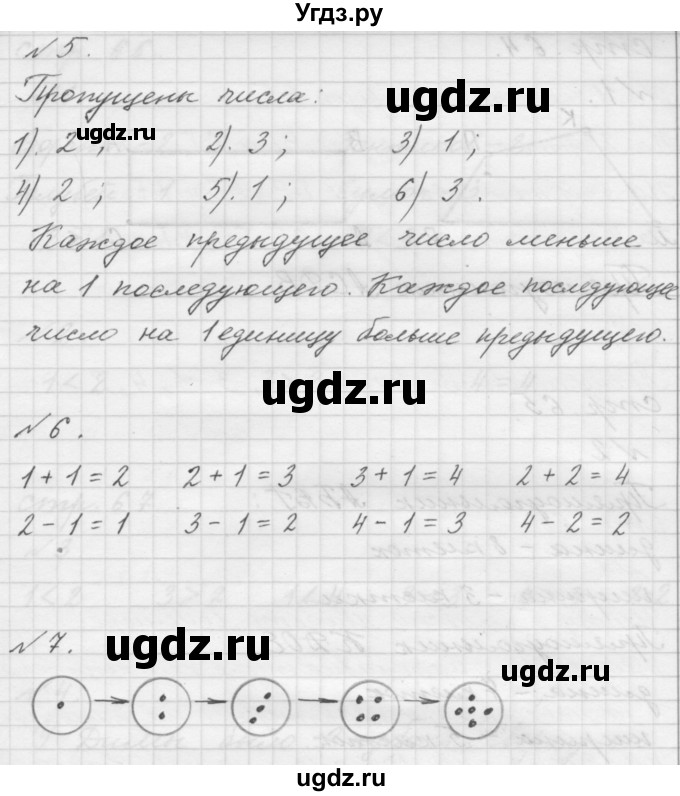 Угдз.ру
№5.
Пропущены числа:
ugdz.ru
1). 2; 2). 3; 3) 1;
ugdz.ru
4) 2; 5). 1; 6) 3.
Каждое предыдущее число меньше
на 1 последующего. Каждое последующее
число на 1 единицу больше предыдущего.
ugdz.ru
№6.
1 + 1 = 2 2 + 1 = 3 3 + 1 = 4 2 + 2 = 4
2 - 1 = 1 3 - 1 = 2 4 - 1 = 3 4 - 2 = 2
№7.
ugdz.ru
ugdz.ru
ugdz.ru
ugdz.ru